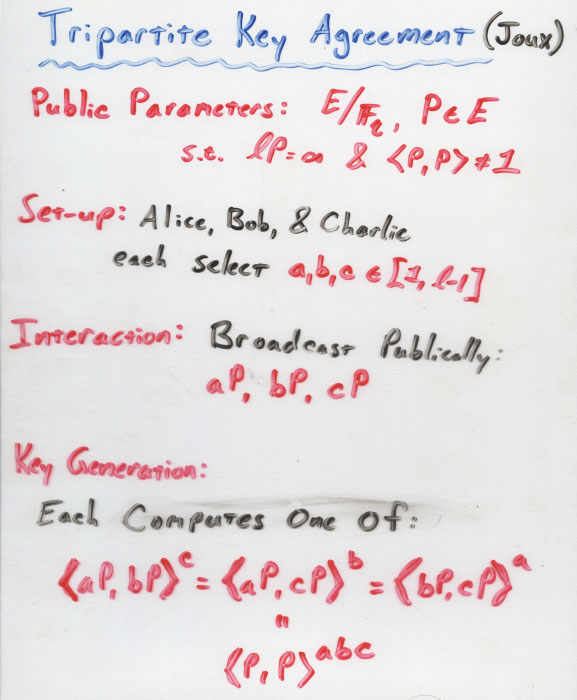 Tripartite Key Agreement (Joux)
Public Parameters: E/𝔽q, P∈E
s.t. lP=∞ & ⟨P,P⟩≠1
Set-up: Alice, Bob, & Charlie
each select a,b,c ∈ [1, l-1]
Interaction: Broadcast Publically:
aP, bP, cP
Key Generation:
Each Computes One Of:
⟨aP,bP⟩^c = ⟨aP,cP⟩^b = ⟨bP,cP⟩^a
=
⟨P,P⟩^abc